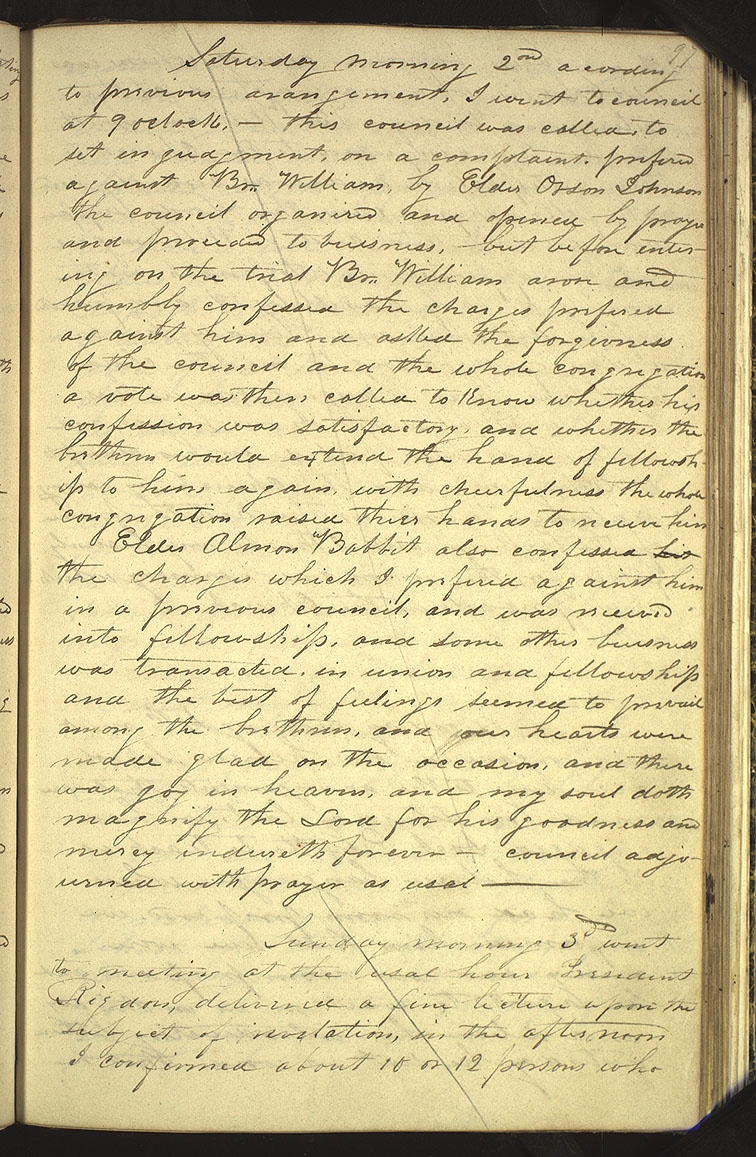 97
Saturday morning 2nd acording
to privious arangement, I went to council
at 9 oclock. — this council was called, to
set in judgment, on a complaint. prefered
against Br. William, by Elder Orson Johnson
the council organized and opened by praye
and proceded to buisness, — but before enter-
ing on the trial Br. William arose and
humbly confessed the charges prefered
against him and asked the forgivness
of the council and the whole congregation
a vote was then called to Know whether his
confession was satisfactory, and whether the
brethren would extend the hand of fellowsh-
ip to him again, with cheerfulness the whole
congregation raised thier hands to receive him
Elder Almon Babbit also confessed his
the charges which I prefered against him
in a previous council, and was received
into fellowship, and some other buisness
was transacted, in union and fellowship
and the best of feelings seemed to prevail
among the brethren, and our hearts were
made glad on the occasion, and there
was joy in heaven, and my soul doth
magnify the Lord for his goodness and
mercy endureth forever — council adjo-
urned with prayer as usal —
Sunday morning 3d went
to meeting at the usal hour President
Rigdon, delivered a fine lecture upon the
subject of revelation, in the afternoon
I confirmed about 10 or 12 persons who